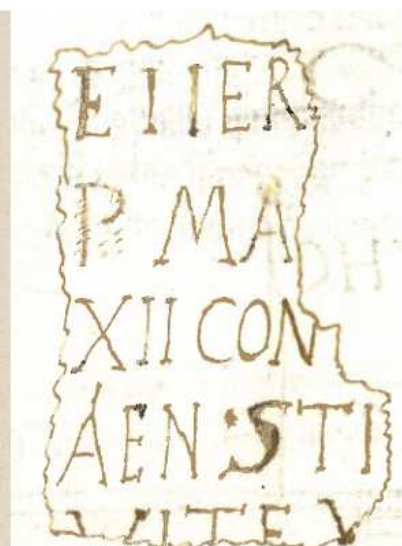 EIIER
P MA
XII CON
AEN·STI